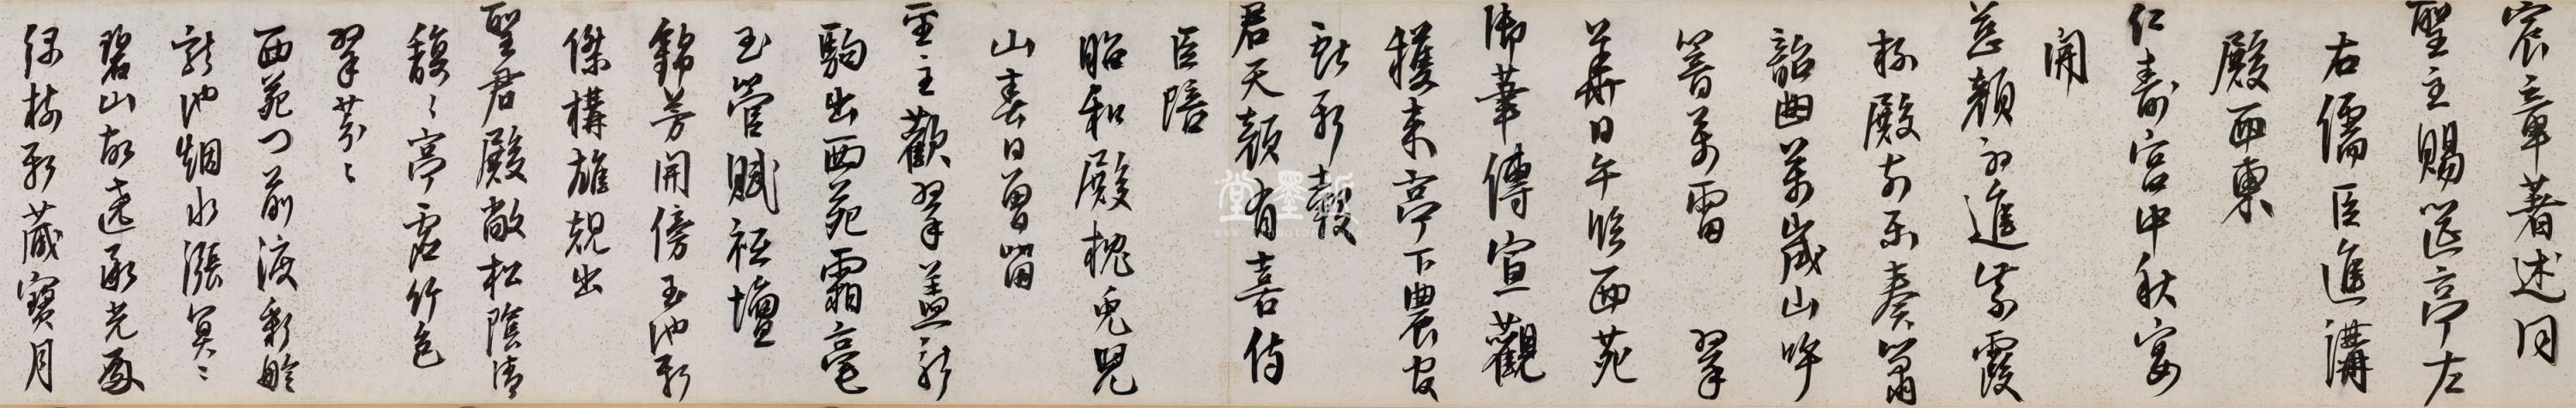 宸章著述同
聖主賜遊亭左
右儒臣進講
殿西東
仁壽宮中秋宴
開
慈顏初進紫霞
杯殿前樂奏簫
韶曲萬歲山呼
答萬雷 翠
華日午臨西苑
御輦傳宣觀
穫來亭下農官
獻新穀
君天顏有喜侍
臣陪
昭和殿兔兒
山春日曾留
聖主歡翠蓋龍
駒出西苑霜毫
玉管賦祗壇
錦芳開傍玉池新
傑構雄規出
聖君殿敞松陰清
馥々亭虛竹色
翠芬々
西苑門前渡彩舲
龍池烟水漲冥々
碧山故遶承光殿
綠樹新藏寶月